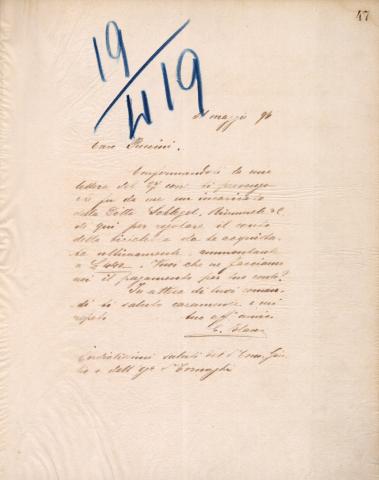 47
19
419
maggio 96
Caro Puccini.
Conformandosi da una
lettera del 29 corr. si presenzo
eri da me un incaricato
della Ditta Schlegel,
di qui per regolare il conto
della bicicletta da te acquista
ta ultimamente, ammontante
a Vuoi che ne facciamo
noi il pagamento per tuo conto?
In attesa di tuoi coman
di ti saluto caramente e mi
ripeto tuo aff. amico
C. Blanc
Cordialissimi saluti del S. Comm. Giu
lio e dell' Tornaghi